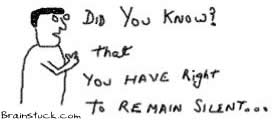 DID YOU KNOW?
that
YOU HAVE Right
TO REMAIN SILENT...
Brainstuck.com